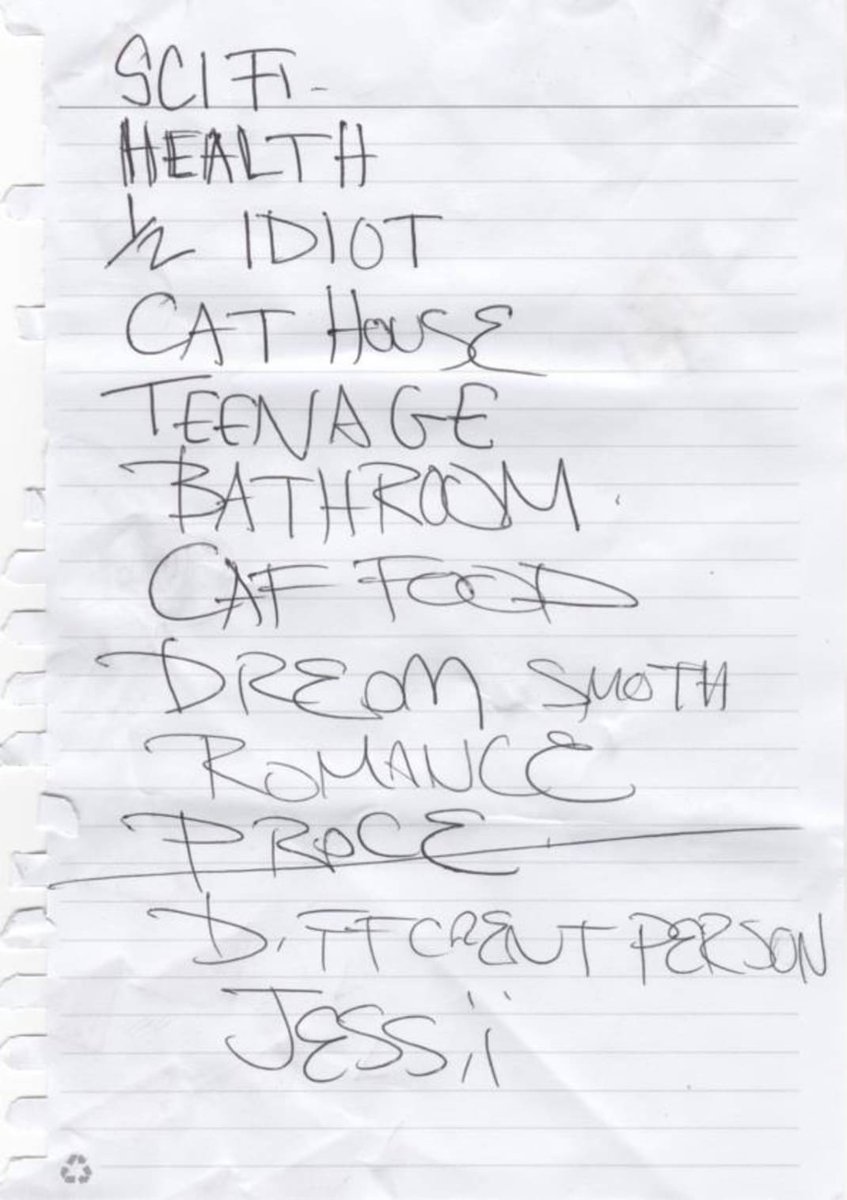 SCI FI -
HEALTH
1/2 IDIOT
CAT HOUSE
TEENAGE
BATHROOM
CAF FOOD
DREAM SMOTH
ROMANCE
PRACE
DIFFERENT PERSON
JESSII